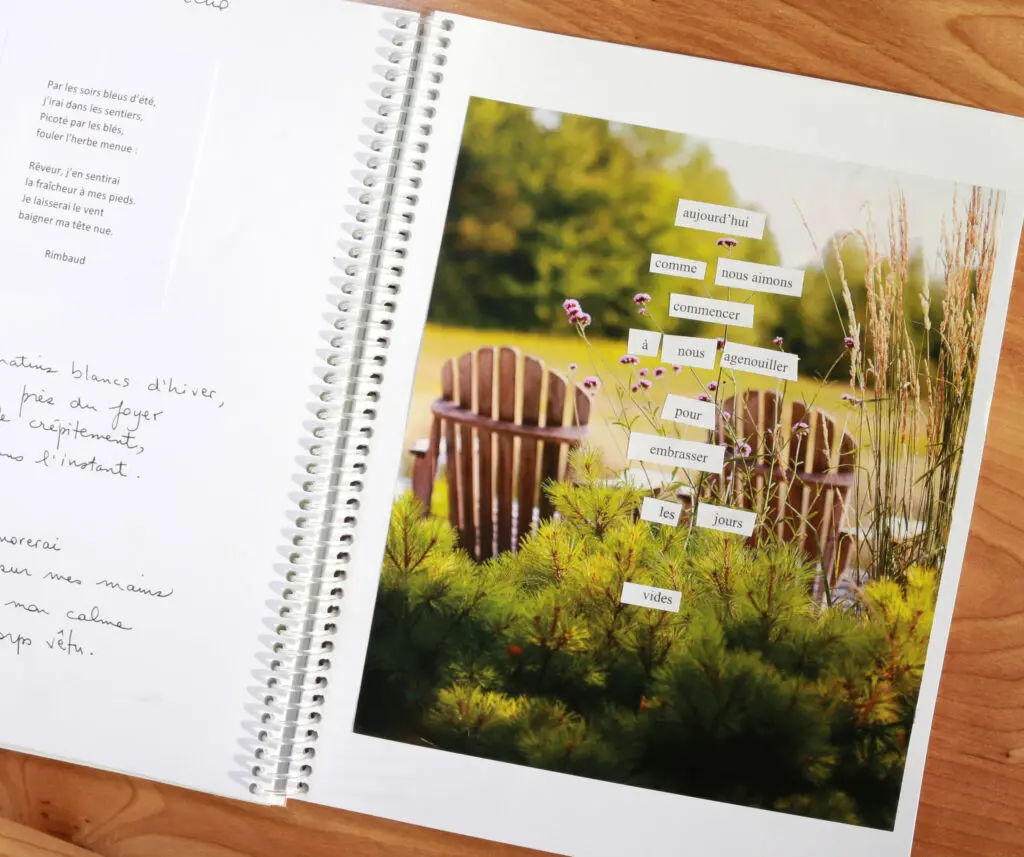 Par les soirs bleus d'été,
j'irai dans les sentiers,
Picoté par les blés,
fouler l'herbe menue :
Rêveur, j'en sentirai
la fraîcheur à mes pieds.
Je laisserai le vent
baigner ma tête nue.
Rimbaud
blancs d'hiver,
près du foyer
crépitement,
l'instant.
sur mes mains
mon calme
vêtu.
aujourd'hui
comme nous aimons
commencer
à nous agenouiller
pour
embrasser
les jours
vides